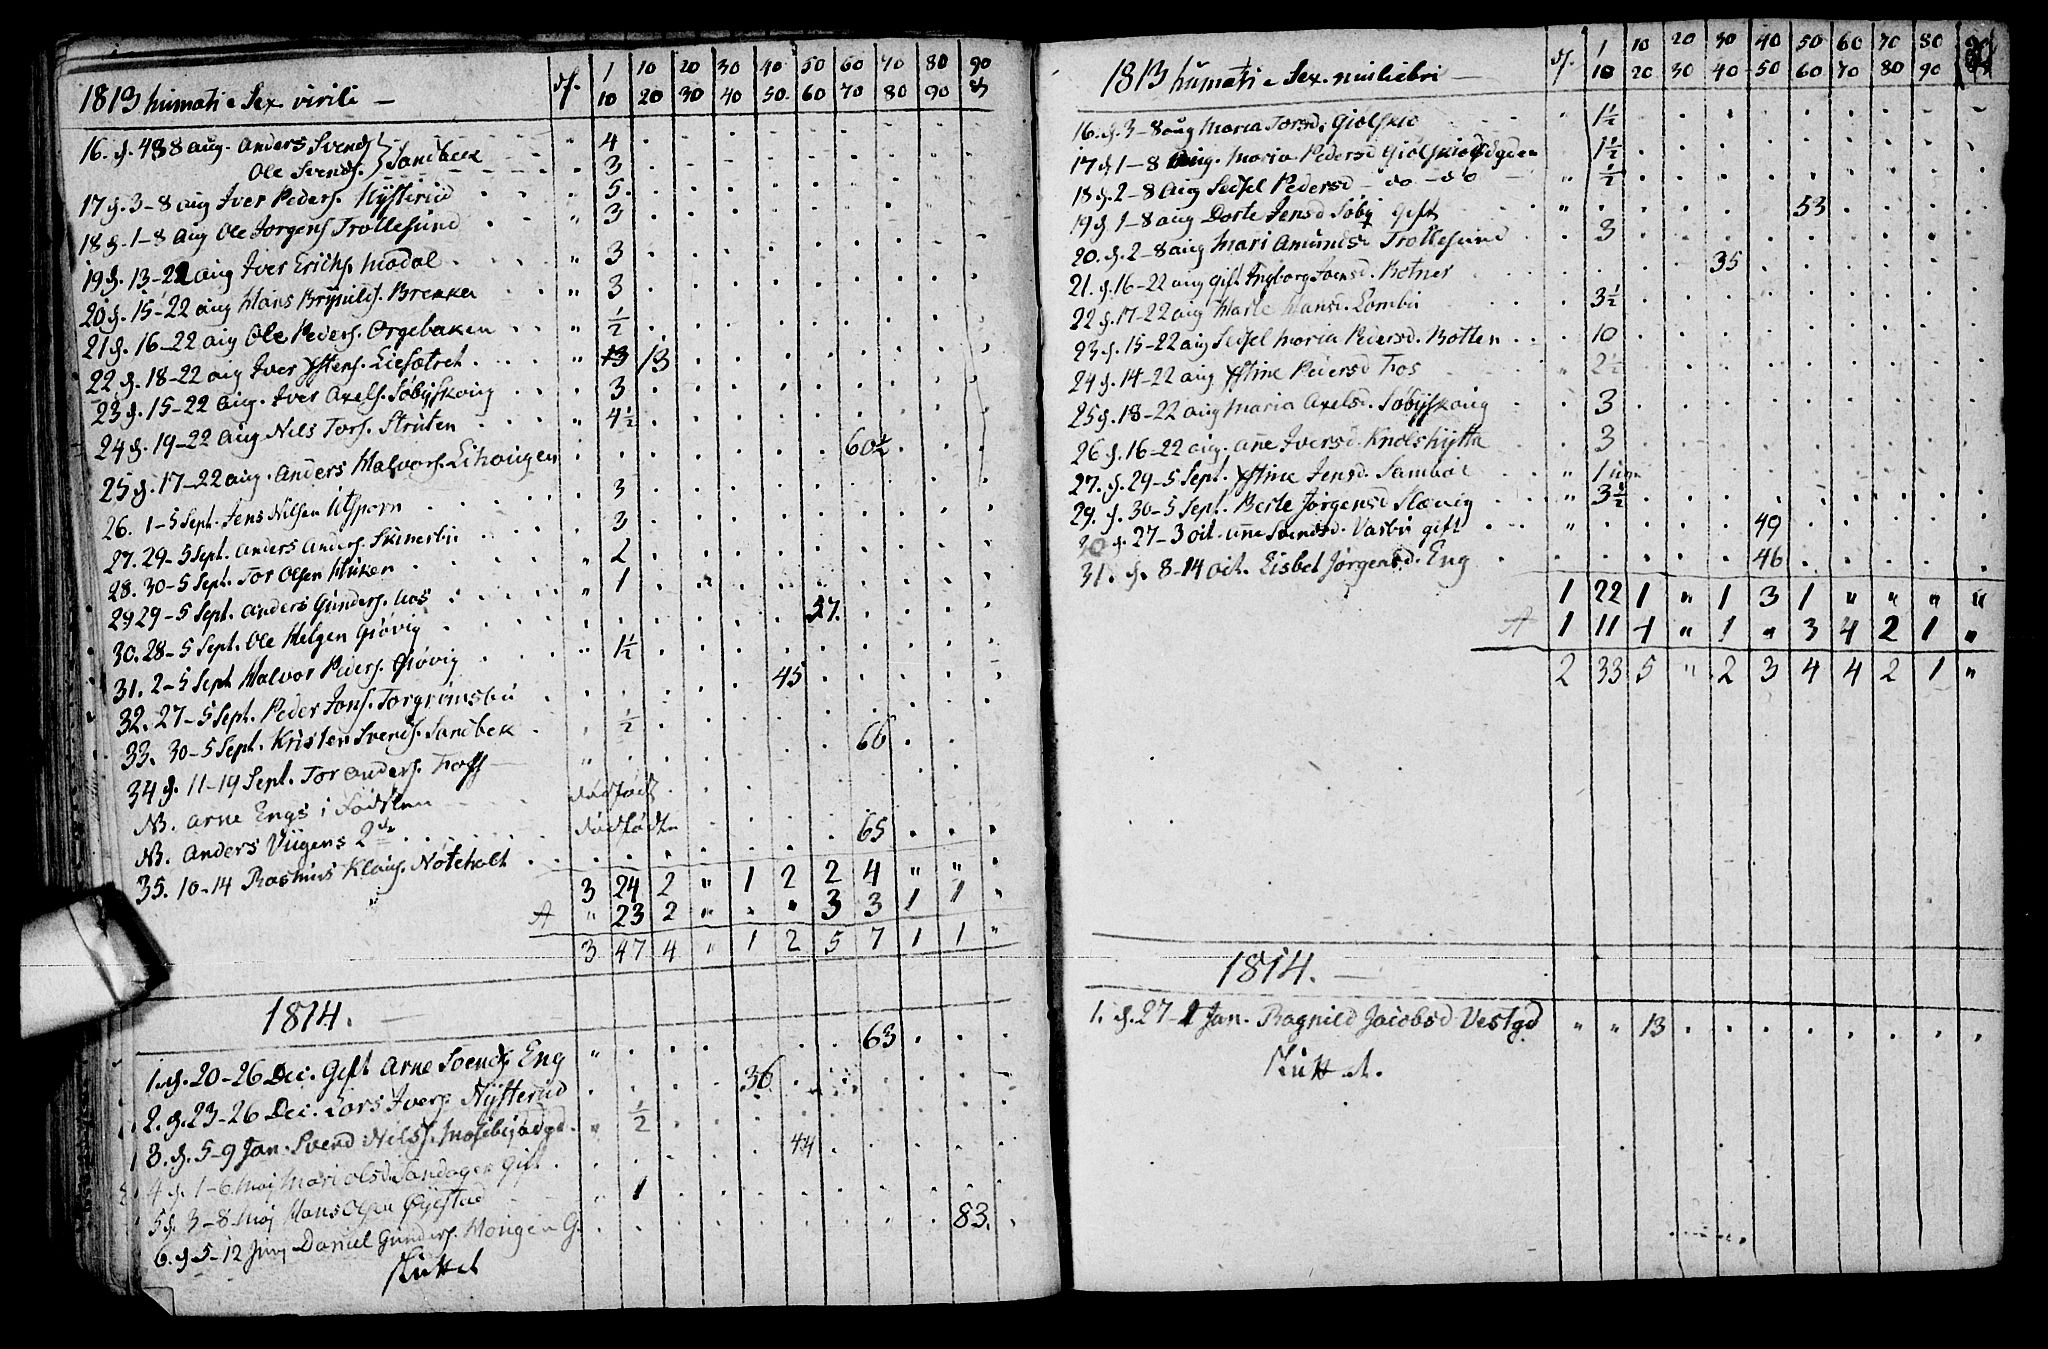 1813 humati e Sex virili — df. 1 10 10 20 20 30 30 40 40 50. 50 60 60 70 70 80 80 90 90
16. d. 4 8 aug. Anders Svends 4
Ole Svends. } Sandbek 3
17 d. 3-8 aug Iver Peders. Nysterud " 5.
18 d. 1-8 Aug Ole Jorgens Trollesund " 3
19 d. 13-22 aug Iver Erichs. Modal " 3
20 d. 15-22 aug Hans Brynilds. Brekka " 3
21 d. 16-22 aug Ole Peders. Orgebaken " ½
22 d. 18-22 aug Iver Ystens. Liesætret " 13 13
23 d. 15-22 aug. Iver Axels. Søbyskoug 3
24 d. 19-22 aug Nils Tors. Struten " 4½
25 d. 17-22 aug. Anders Halvors. Lihougen 60½
26. 1-5 Sept. Jens Nilsen Utsporn 3
27. 29-5 Sept. Anders Anders. Skinnerbu 3
28. 30-5 Sept. Tor Olsen " 2
29 29-5 Sept. Anders Gunders. Aas " 1
30. 28-5 Sept. Ole Helgen Giøvig 57.
31. 2-5 Sept Halvor Peders. Giøvig " 1½
32. 27-5 Sept. Peder Jons. Torgrimsbu 45
33. 30-5 Sept. Kristen Svends. Sandbek ½
34 d. 11-19 Sept. Tor Anders. Foss — 66
NB. Arne Engs i Fødslen dødfødt
NB. Anders Viigens 2de dødfødte
35. 10-14 Rasmus Klaus. Noteholt 65
3 24 2 " 1 2 2 4 " "
A " 23 2 " " " 3 3 1 1 "
3 47 4 " 1 2 5 7 1 1 "
1814. —
1. d. 20-26 Dec. Gift Arne Svends. Eng " 63
2. d. 23-26 Dec. Lars Ivers. Nysterud 36
3. d. 5-9 Jan. Svend Nils. " ½
4 d. 1-6 Maj Mari Olsd. Sandager Gift. 44
5 d. 3-8 Maj Hans Olsen Øyestad " 1
6. d. 5-12 Junj Daniel Gunders. Hougen G. 83.
sluttet
1813 humati e Sex. muliebri — df. 1 10 10 20 20 30 30 40 40 50 50 60 60 70 70 80 80 90 90
16. d. 3-8 aug Maria Torsd. Giølskio " 1½
17 d 1-8 aug. Maria Pedersd Giølskio " 1½
18 d. 2-8 aug Seisel Pedersd — do — do — " ½
19 d 1-8 aug Dorte Jensd Søby Gift " 53
20. d. 2-8 aug Mari Amundsd Trollesund 3
21. d. 16-22 aug Gift Ingborg Svensd. Botner 35
22 d. 17-22 aug Marte Hansd. Lombu 3½
23 d. 15-22 aug Seisel Maria Pedersd. Botten 10
24 d. 14-22 aug Ystine Pedersd Fos " 2½
25 d. 18-22 aug Maria Axelsd. Søbyskoug 3
26 d. 16-22 aug. Anne Iversd. Knolshytta 3
27. d. 29-5 Sept. Ystine Jensd. Sambøl " 1
29. d. 30-5 Sept. Berte Jørgensd Slævig " 3½
30 d. 27-3 oct. Anne Svendsd. Vasbu gift " 49
31. d. 8-14 oct. Lisbet Jørgensd. Eng 46
1 22 1 " 1 3 1 " " " "
A 1 11 4 " 1 " 3 4 2 1 "
2 33 5 " 2 3 4 4 2 1 "
1814. —
1. d. 27-2 Jan. Ragnild Jacobsd Vestgd " " 13
sluttet.